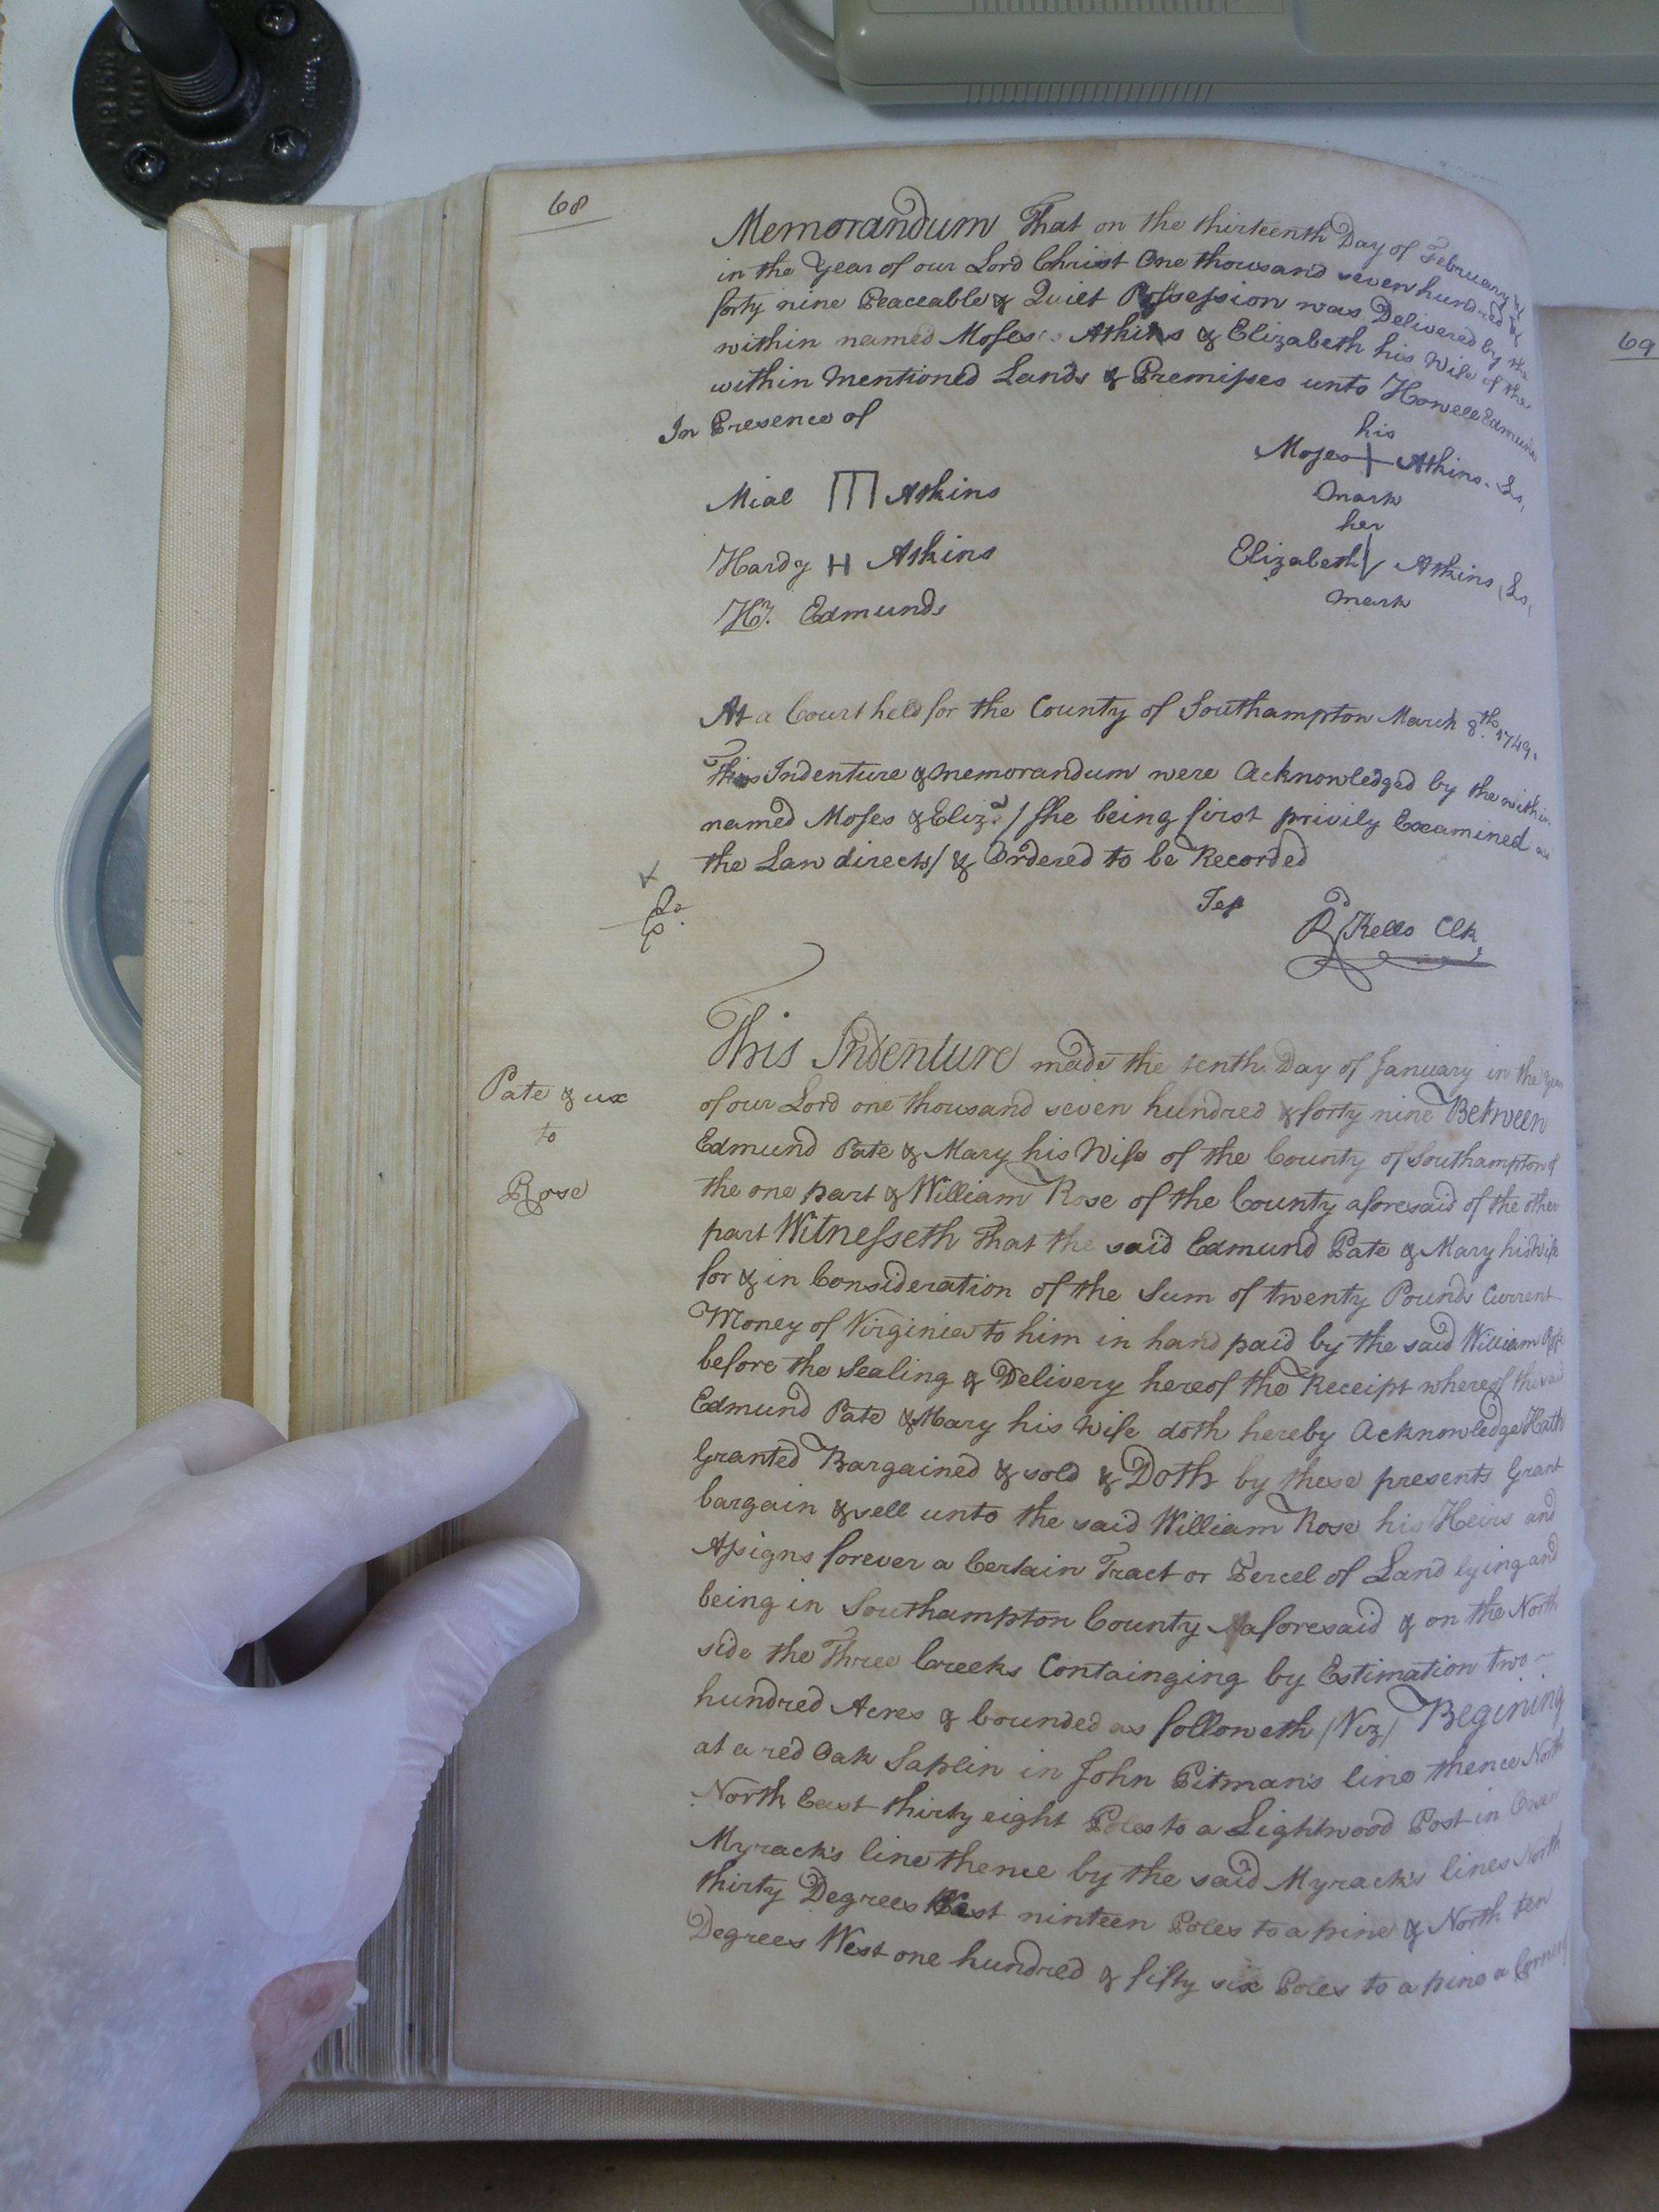 68
Memorandum That on the thirteenth Day of February
in the Year of our Lord Christ One thousand seven hundred &
forty nine Peaceable & Quiet Possession was Delivered by the
within named Moses Atkins & Elizabeth his Wife of the
within Mentioned Lands & Premises unto Howell Edmunds
In Presence of
his
Moses Atkins Ls,
mark
Mial Atkins
her
Hardy H Atkins
Elizabeth Atkins Ls,
mark
Hl. Edmunds
At a Court held for the County of Southampton March 8th. 1749.
This Indenture & Memorandum were Acknowledged by the within
named Moses & Eliza / She being first privily Examined as
the Law directs/ & Ordered to be Recorded
Test
Rd Kello Clk
Pate & ux
to
Rose
This Indenture made the tenth Day of January in the Year
of our Lord one thousand seven hundred & forty nine Between
Edmund Pate & Mary his Wife of the County of Southampton of
the one part & William Rose of the County aforesaid of the other
part Witnesseth That the said Edmund Pate & Mary his Wife
for & in Consideration of the Sum of twenty Pounds Current
Money of Virginia to him in hand paid by the said William Rose
before the Sealing & Delivery hereof the Receipt whereof the said
Edmund Pate & Mary his Wife doth hereby Acknowledge Hath
Granted Bargained & sold & Doth by these presents Grant
bargain & sell unto the said William Rose his Heirs and
Assigns forever a Certain Tract or Percel of Land lying and
being in Southampton County aforesaid & on the North
side the Three Creeks Containging by Estimation two
hundred Acres & bounded as followeth (Viz) Begining
at a red Oak Saplin in John Pitman's line thence North
North East thirty eight Poles to a Lightwood Post in Owen
Myrack's line thence by the said Myrack's lines North
thirty Degrees West ninteen Poles to a pine & North ten
Degrees West one hundred & fifty six Poles to a pine a Corner
69